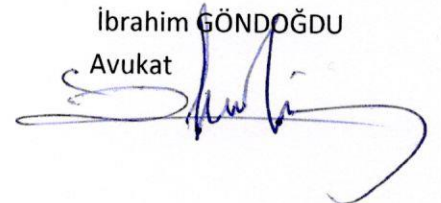 İbrahim GÖNDOĞDU
Avukat